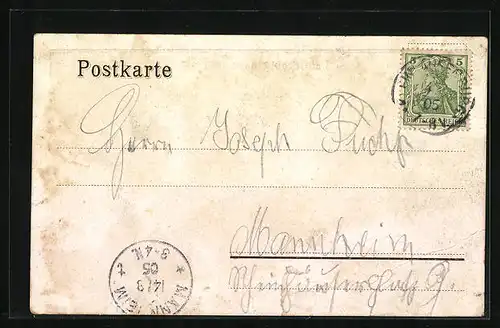 Postkarte
5 5
DEUTSCHES REICH
05
Herrn Joseph Fuchs
Mannheim
MANNHEIM
14/3
05
3-4N.